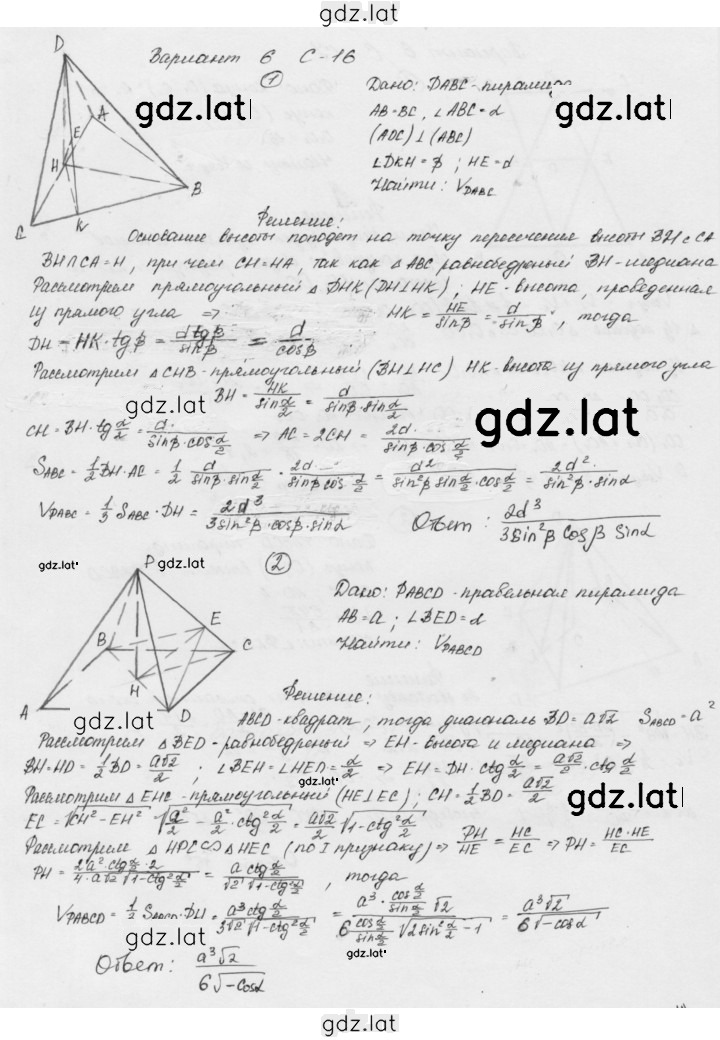 gdz.lat
Вариант 6 С-16
1
Дано: DABC - пирамида
AB=BC, ∠ABC=α
(ADC)⊥(ABC)
∠DKH=β ; HE=d
Найти: V_DABC
D
A
E
H
B
C
K
gdz.lat
gdz.lat
Решение:
Основание высоты попадет на точку пересечения высоты BH с CA
BH∩CA=H, при чем CH=HA, так как △ABC равнобедреный BH-медиана
Рассмотрим прямоугольный △DHK (DH⊥HK), HE-высота, проведенная
из прямого угла ⇒ HK = HE/sinβ = d/sinβ, тогда
DH = HK·tgβ = d tgβ/sinβ = d/cosβ
Рассмотрим △CHB-прямоугольный (BH⊥HC) HK-высота из прямого угла
BH = HK/sin α/2 = d/sinβ·sin α/2
gdz.lat
gdz.lat
CH = BH·tg α/2 = d/sinβ·cos α/2 ⇒ AC = 2CH = 2d/sinβ·cos α/2
S_ABC = 1/2 BH·AC = 1/2 d/sinβ·sin α/2 · 2d/sinβ cos α/2 = d²/sin²β sin α/2·cos α/2 = 2d²/sin²β·sinα
V_DABC = 1/3 S_ABC·DH = 2d³/3sin²β·cosβ·sinα
Ответ: 2d³/3sin²β cosβ sinα
gdz.lat
gdz.lat
2
P
Дано: PABCD - правельная пирамида
AB=a ; ∠BED=α
Найти: V_PABCD
B
E
C
H
A
D
gdz.lat
Решение:
ABCD-квадрат, тогда диагональ BD=a√2 S_ABCD=a²
Рассмотрим △BED-равнобедреный ⇒ EH-высота и медиана ⇒
BH=HD=1/2 BD=a√2/2 ; ∠BEH=∠HED=α/2 ⇒ EH=DH·ctg α/2 = a√2/2·ctg α/2
gdz.lat
gdz.lat
Рассмотрим △EHC-прямоугольный (HE⊥EC); CH=1/2 BD=a√2/2
EC=√CH²-EH² = √a²/2 - a²/2·ctg² α/2 = a√2/2 √1-ctg² α/2
Рассмотрим △HPC∽△HEC (по I признаку) ⇒ PH/HE = HC/EC ⇒ PH = HC·HE/EC
PH = 2a²·ctg α/2·2/4·a√2 √1-ctg² α/2 = a ctg α/2/√2 √1-ctg² α/2, тогда
V_PABCD = 1/3 S_ABCD·PH = a³ctg α/2/3√2 √1-ctg² α/2 = a³·cos α/2/sin α/2 √2/6 cos α/2/sin α/2 √2sin² α/2-1 = a³√2/6√-cosα
gdz.lat
gdz.lat
Ответ: a³√2/6√-cosα
gdz.lat